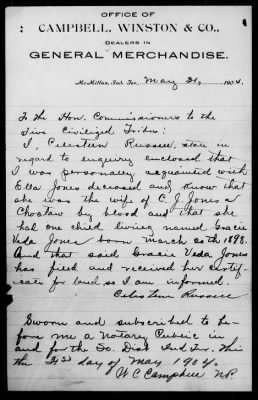 OFFICE OF
CAMPBELL, WINSTON & CO.,
DEALERS IN
GENERAL MERCHANDISE.
McMillan, Ind. Ter., May 31, 1904.
To the Hon. Commissioners to the
Five Civilized Tribes:
I, Celesteen Russell, state in
regard to enquiry enclosed that
I was personally acquainted with
Ella Jones deceased and know that
she was the wife of C. J. Jones a
Choctaw by blood and that she
had one child living named Gracie
Veda Jones born March 20th 1898.
And that said Gracie Veda Jones
has filed and received her certifi-
cate for land so I am informed.
Celesteen Russell
Sworn and subscribed to be-
fore me a Notary Public in
and for the So. Dist Ind. Ter. this
the 31st day of May 1904.
W C Campbell N.P.